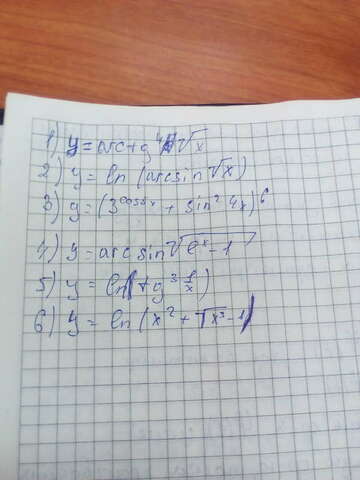 1) y = arctg⁴ √x
2) y = ln (arcsin √x)
3) y = (3^cos5x + sin² 4x)⁶
4) y = arcsin √(eˣ - 1)
5) y = ln(tg³ 1/x)
6) y = ln (x² + √x³ - 1)